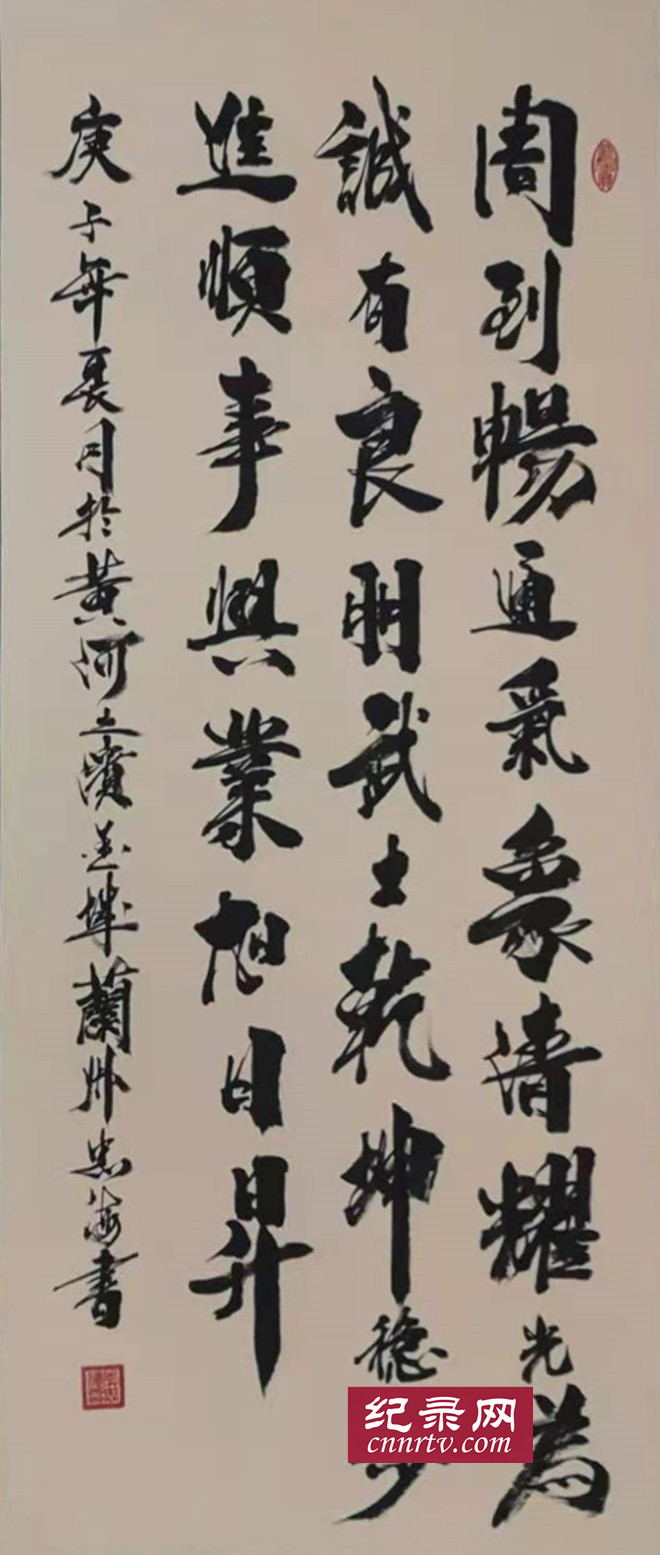 周到暢通氣象濤耀光為
誠有良朋武士乾坤穩步
進順事興業旭日昇
庚子年夏月於黃河之濱金城蘭州忠海書
纪录网
cnnrtv.com